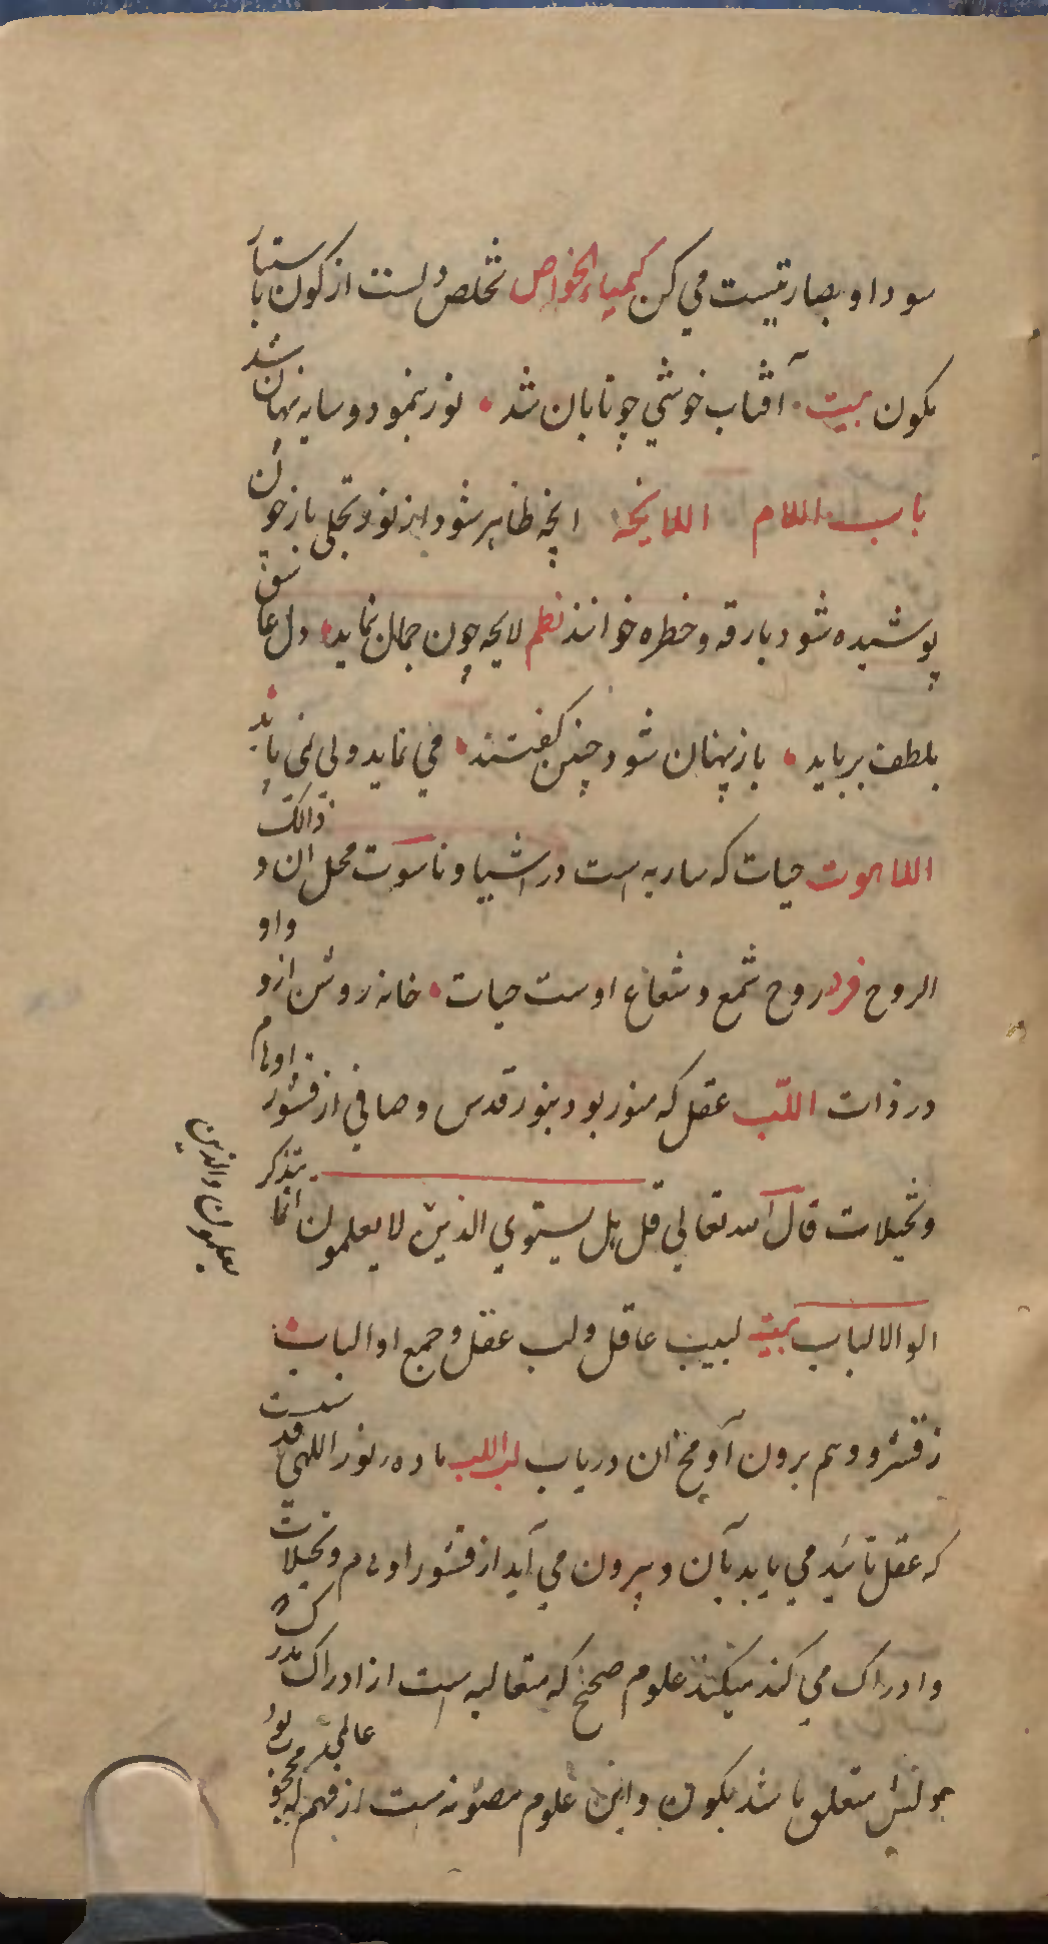 سود او بصارتیست می کن کیمیاء الخواص تخلص دلست از کون باستیار
بکون بیت آفتاب خوشی چو تابان شد نور بنمود و سایه پنهان شد
باب اللام اللایحه انچه ظاهر شود از نور تجلی باز خوان
پوشیده شود بارقه و خطره خوانند نظم لایحه چون جمال نماید دل عاشق
بلطف برباید باز پنهان شود چنین گفتند می نماید ولی نمی پاید
اللاهوت حیات که ساریه است در اشیا و ناسوت محل ان و ذالک
الروح فرد روح شمع و شعاع اوست حیات خانه روشن ازو واو
در ذات اللب عقل که منور بود بنور قدس و صافی از قشور اوهام
و تخیلات قال الله تعالی قل هل یستوی الذین لا یعلمون انما یتذکر
یعلمون والذین
الوالالباب بیت لبیب عاقل و لب عقل و جمع او الباب
ز قشر و وهم برون آ و مخ ان دریاب لب اللب ماده نور اللهی قدست
که عقل تائید می یابد بآن و بیرون می آید از قشور اوهام و تخیلات
و ادراک می کند میکند علوم صحیح که متعالیه است از ادراک مدرک
متعلق باشد بکون و این علوم مصئونه است از فهم که محجوب بود